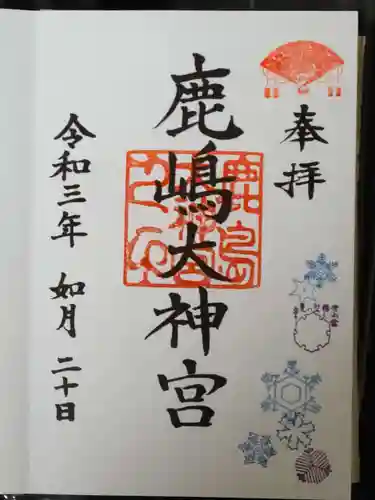 奉拝
鹿嶋大神宮
令和三年 如月 二十日